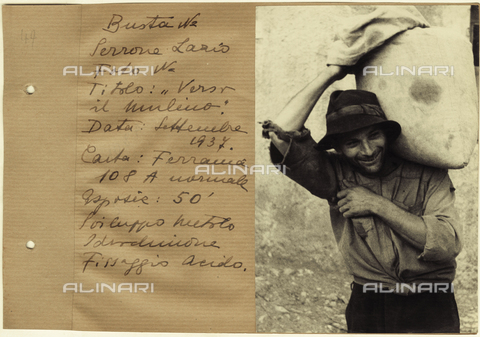 Busta Nº
Serrone Lazio
Foto Nº
Titolo: "Verso
il Mulino".
Data: Settembre
1937.
Carta: Ferrania
108 A normale
Esposiz: 50'
Sviluppo Metolo
Idrochinone
Fissaggio Acido.
ALINARI
ALINARI
ALINARI
ALINARI
ALINARI
ALINARI